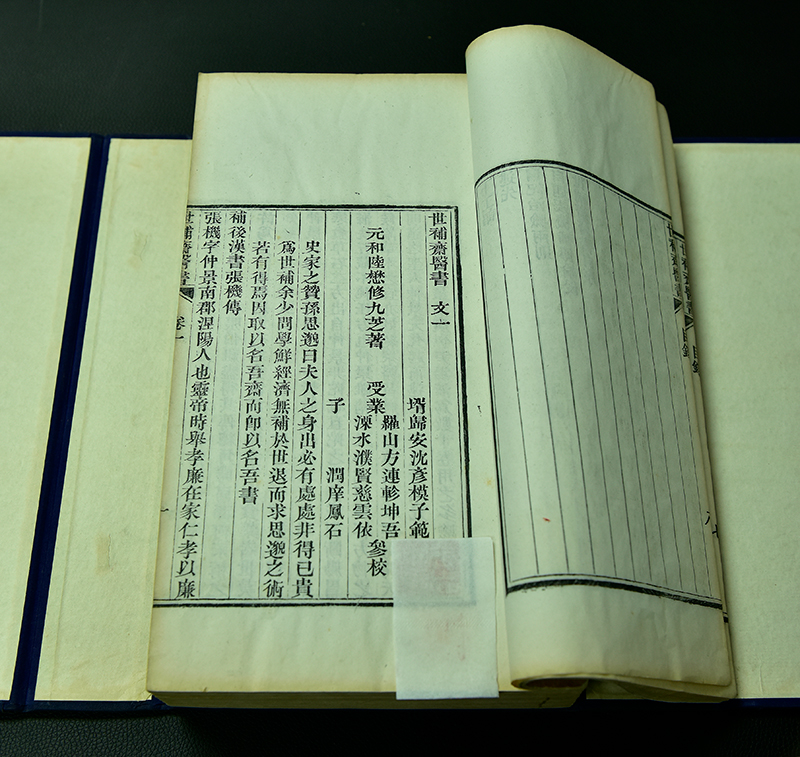 世補齋醫書 文一
壻歸安沈彥模子範
元和陸懋修九芝著 受業 羅山方連軫坤吾 參校
溧水濮賢慈雲依
子 潤庠鳳石
史家之贊孫思邈曰夫人之身出必有處處非得已貴
爲世補余少問學鮮經濟無補於世退而求思邈之術
若有得焉因取以名吾齋而卽以名吾書
補後漢書張機傳
張機字仲景南郡涅陽人也靈帝時舉孝廉在家仁孝以廉
世補齋醫書 卷一
世補齋醫書 目錄
世補齋醫書 目錄